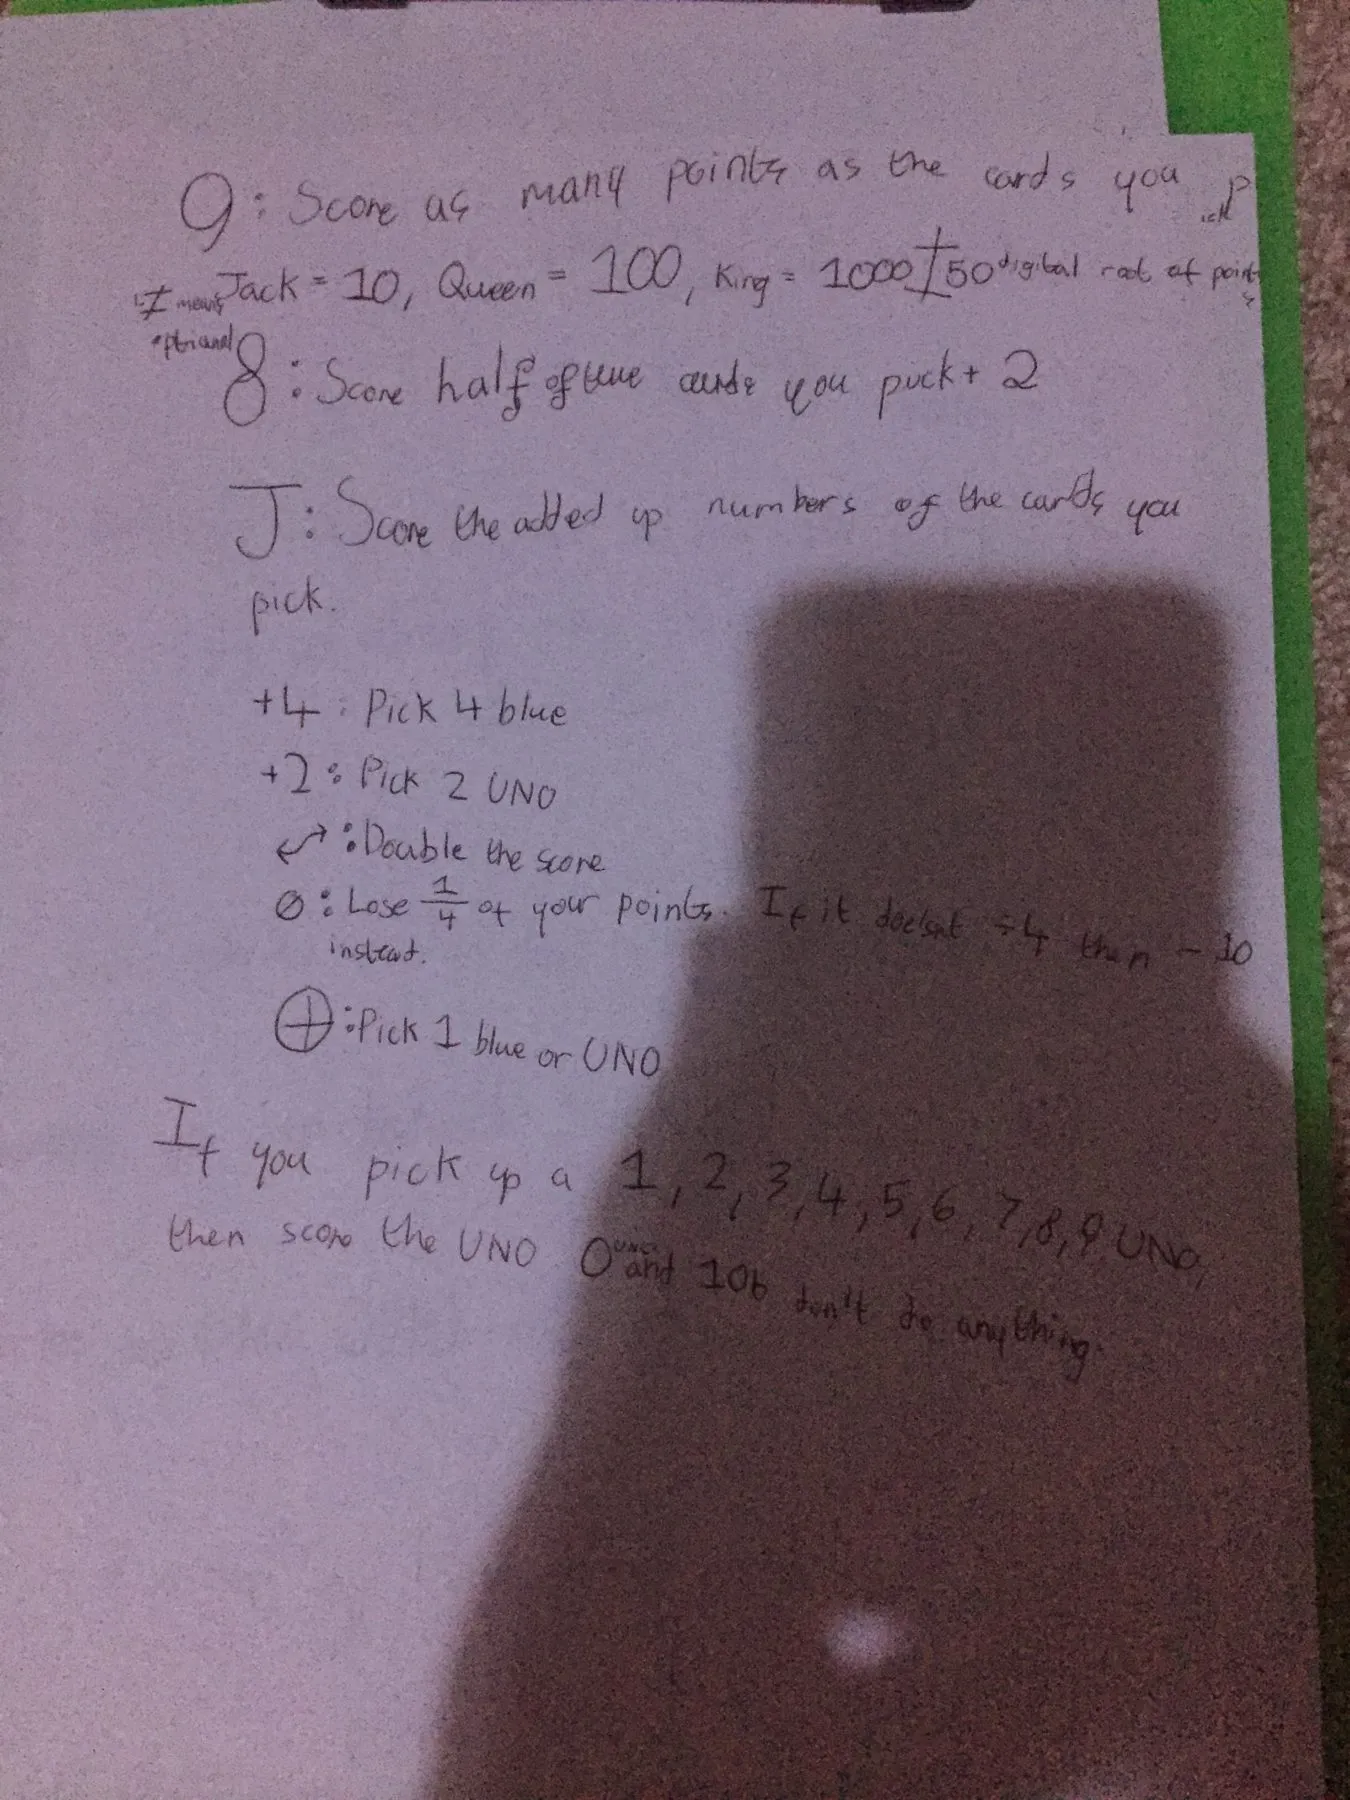 9: Score as many points as the cards you pick
Jack = 10, Queen = 100, King = 1000 ± 50 digital root of points
± means optional
8: Score half of the cards you pick + 2
J: Score the added up numbers of the cards you
pick.
+4: Pick 4 blue
+2: Pick 2 UNO
↔: Double the score
0: Lose 1/4 of your points. If it doesnt ÷4 then - 10
instead.
⊕: Pick 1 blue or UNO
If you pick up a 1, 2, 3, 4, 5, 6, 7, 8, 9 UNO,
then score the UNO 0 UNO and 10b don't do anything.